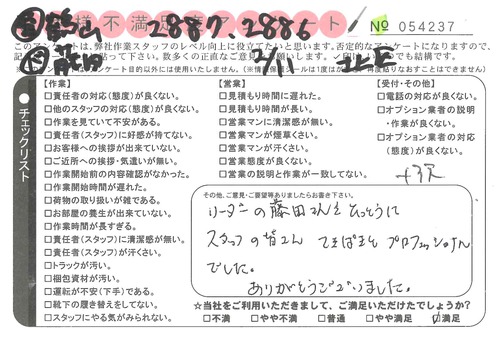 様不満足度アンケート
№ 054237
2887.2886
このアンケートは、弊社作業スタッフのレベル向上に役立てたいと思います。否定的なアンケートになりますので、
チェックリスト
【作業】
□責任者の対応(態度)が良くない。
□他のスタッフの対応(態度)が良くない。
□作業を見ていて不安がある。
□責任者(スタッフ)に好感が持てない。
□お客様への挨拶が出来ていない。
□ご近所への挨拶・気遣いが無い。
□作業開始前の内容確認がなかった。
□作業開始時間が遅れた。
□荷物の取り扱いが雑である。
□お部屋の養生が出来ていない。
□作業時間が長すぎる。
□責任者(スタッフ)に清潔感が無い。
□責任者(スタッフ)が汗くさい。
□トラックが汚い。
□梱包資材が汚い。
□運転が不安(下手)である。
□靴下の履き替えをしてない。
□スタッフにやる気がみられない。
【営業】
□見積もり時間に遅れた。
□見積もり時間が長い。
□営業マンに清潔感が無い。
□営業マンが煙草くさい。
□営業マンが汗くさい。
□営業態度が良くない。
□営業の説明と作業が一致してない。
【受付・その他】
□電話の対応が良くない。
□オプション業者の説明
・作業が良くない。
□オプション業者の対応
(態度)が良くない。
その他、ご意見・ご要望等ありましたらお書き下さい。
リーダーの藤田さんをはじめ
スタッフの皆さん てきぱきと プロフェッショナル
でした。
ありがとうございました。
☆当社をご利用いただきまして、ご満足いただけたでしょうか?
□不満 □やや不満 □普通 □やや満足 ☑満足